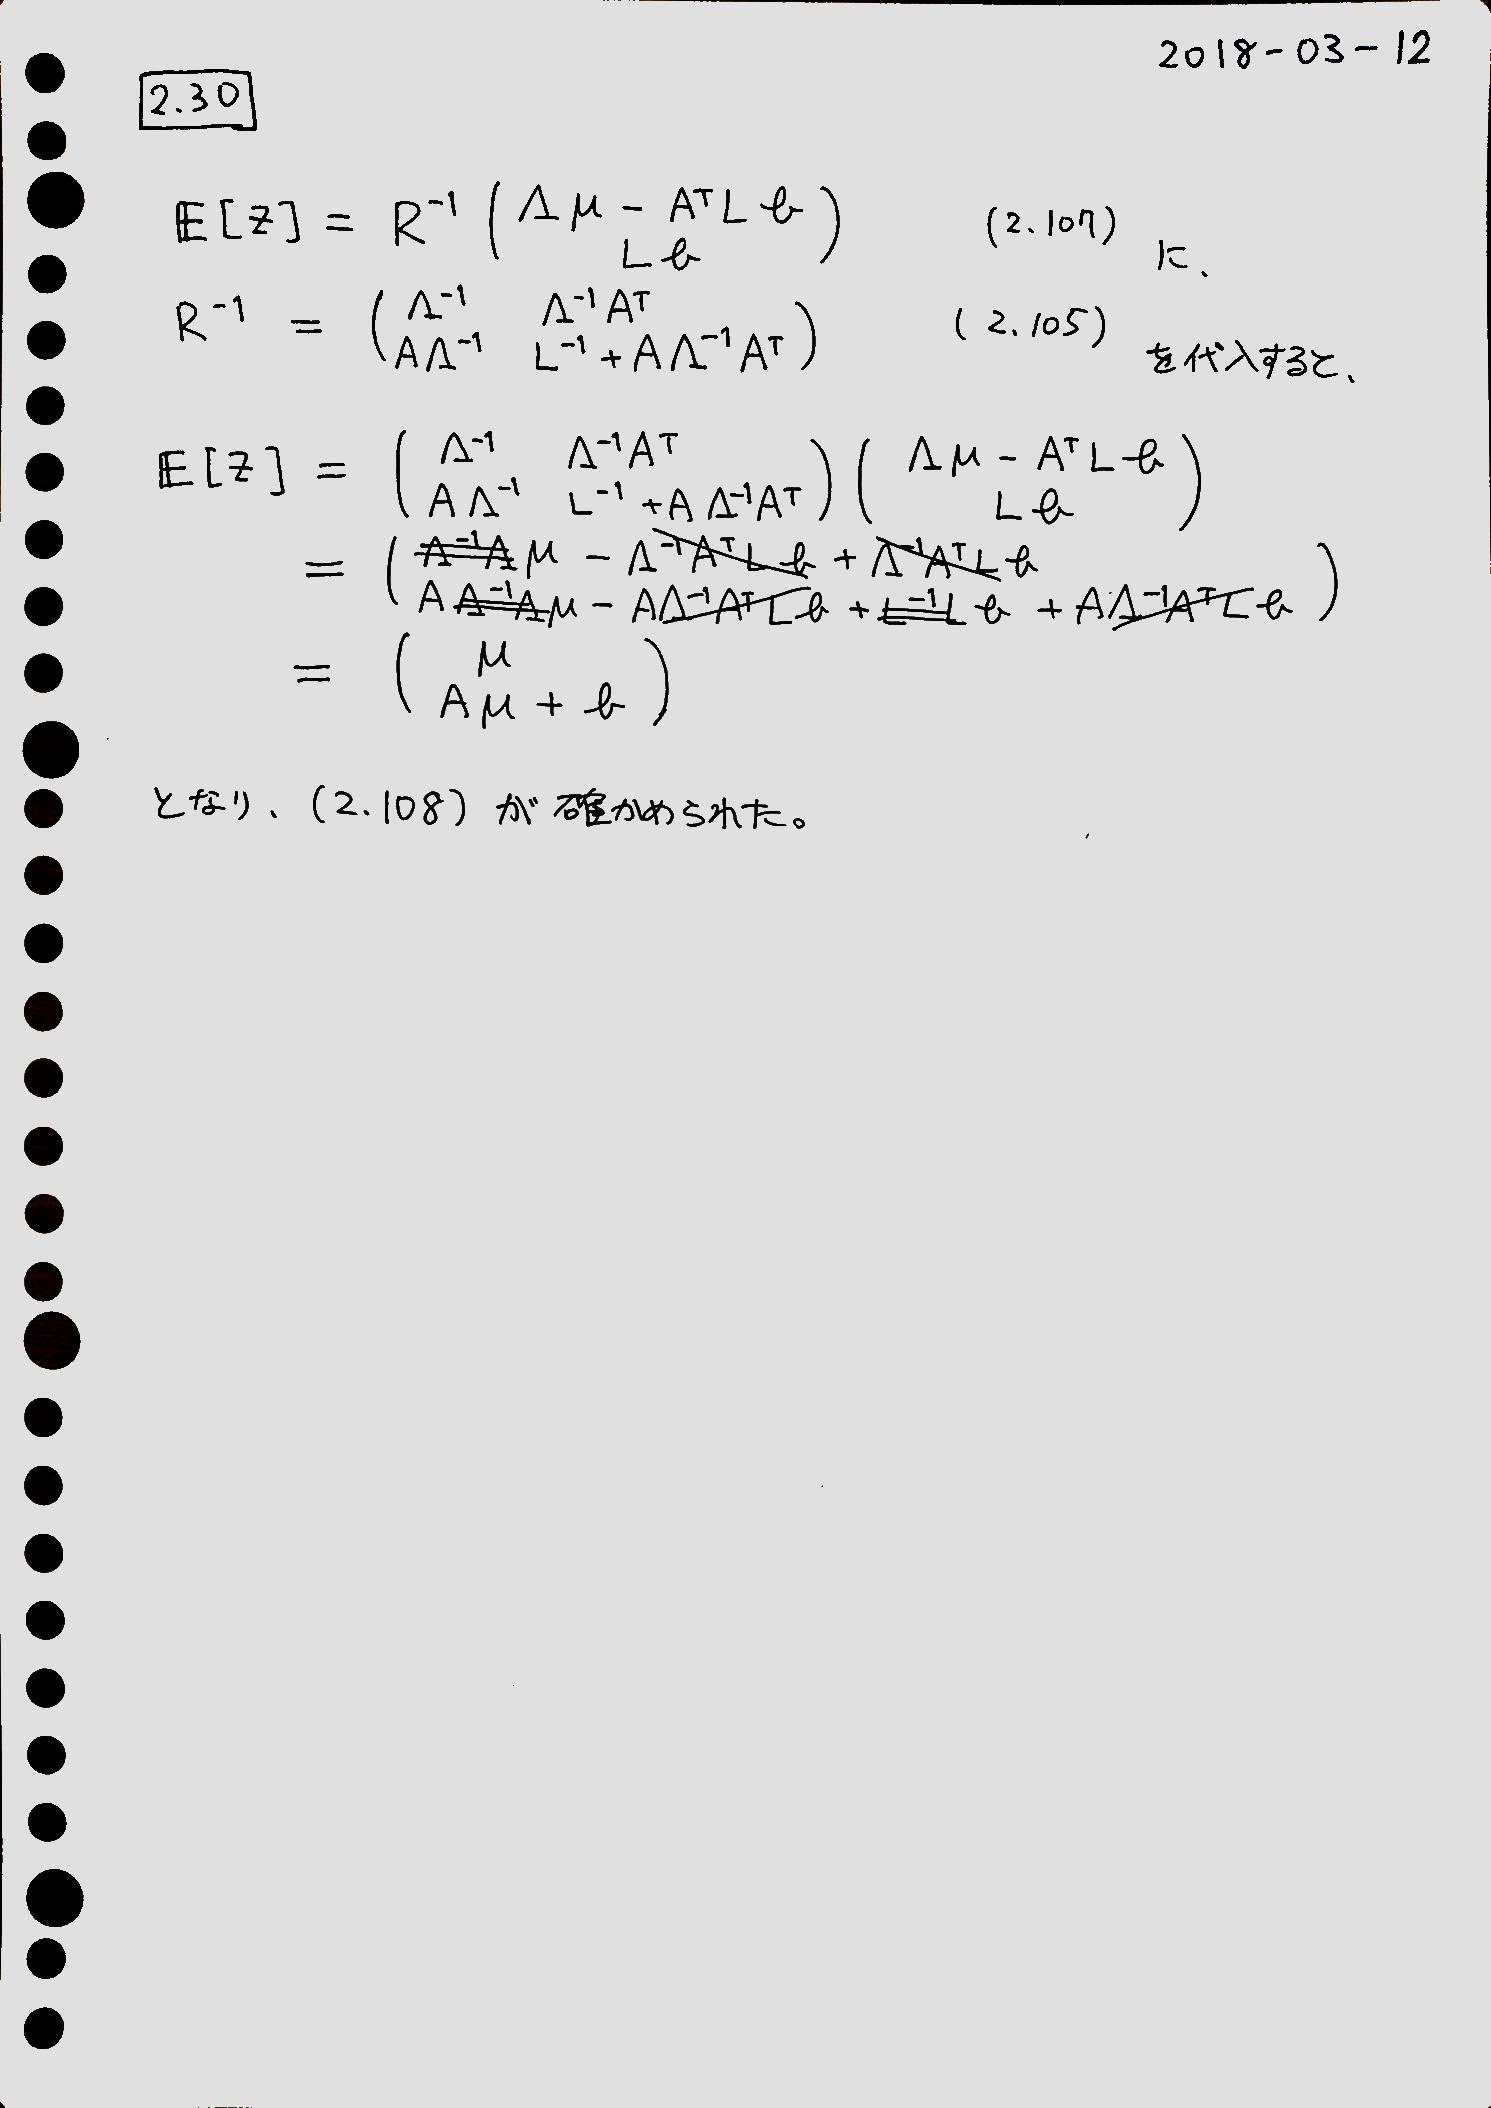 2018-03-12
2.30
𝔼[z] = R⁻¹ ( Λμ - AᵀL𝕓 (2.107)
L𝕓 ) に、
R⁻¹ = ( Λ⁻¹ Λ⁻¹Aᵀ (2.105)
AΛ⁻¹ L⁻¹ + AΛ⁻¹Aᵀ ) を代入すると、
𝔼[z] = ( Λ⁻¹ Λ⁻¹Aᵀ ) ( Λμ - AᵀL𝕓
AΛ⁻¹ L⁻¹ + AΛ⁻¹Aᵀ ) ( L𝕓 )
= ( Λ⁻¹Λμ - Λ⁻¹AᵀL𝕓 + Λ⁻¹AᵀL𝕓
AΛ⁻¹Λμ - AΛ⁻¹AᵀL𝕓 + L⁻¹L𝕓 + AΛ⁻¹AᵀL𝕓 )
= ( μ
Aμ + 𝕓 )
となり、(2.108) が確かめられた。